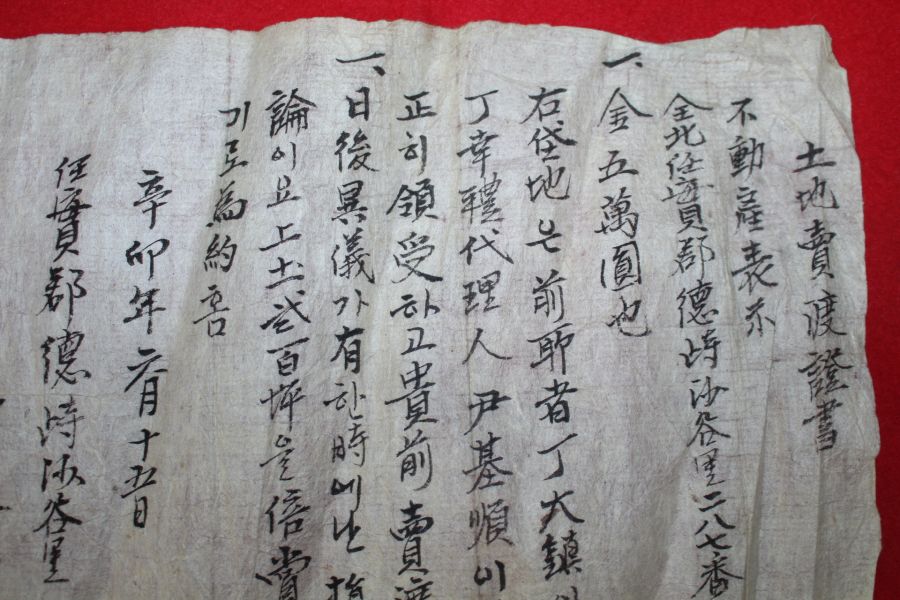 土地賣渡證書
不動産表示
全北任實郡德峙沙谷里二八七番
一、金五萬圓也
右垈地은前 者丁大鎮
丁幸 代理人尹基順이
正히領受하고貴前賣渡
一、日後異儀가有한時에난
論이요上土弐百坪을倍賞
기로為約
辛卯年六月十五日
任實郡德峙沙谷里